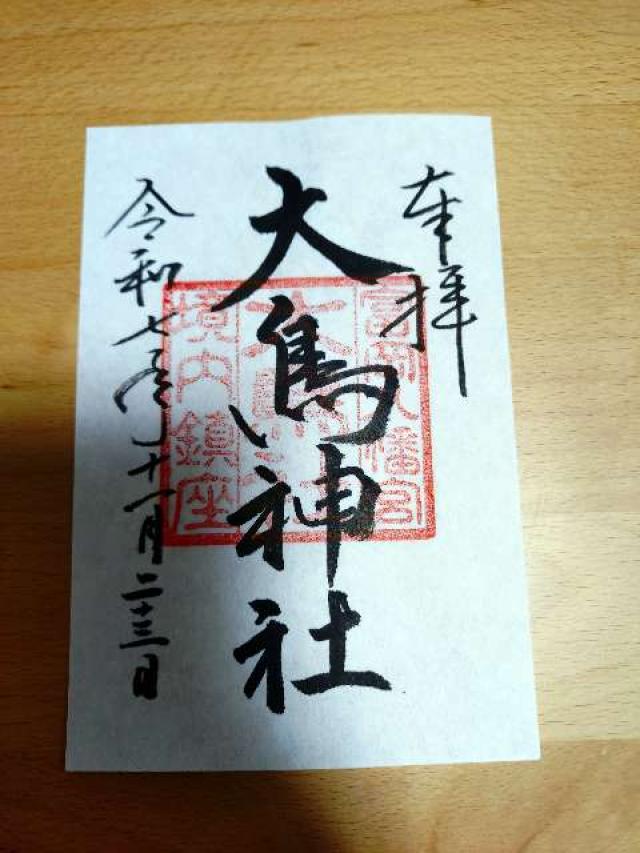 奉拝
大鳥神社
令和七年十一月二十三日
富岡八幡宮
大鳥神社
境内鎮座